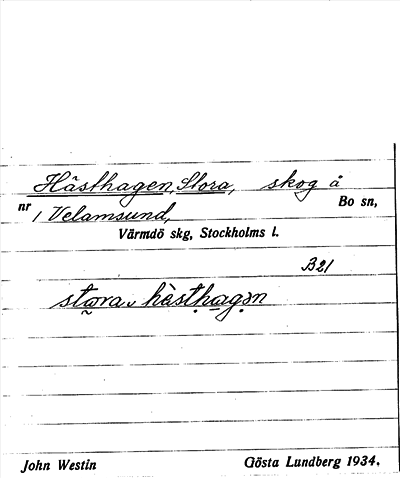 Hästhagen, Stora, skog å
nr / Velamsund, Bo sn,
Värmdö skg, Stockholms l.
B21
John Westin Gösta Lundberg 1934.